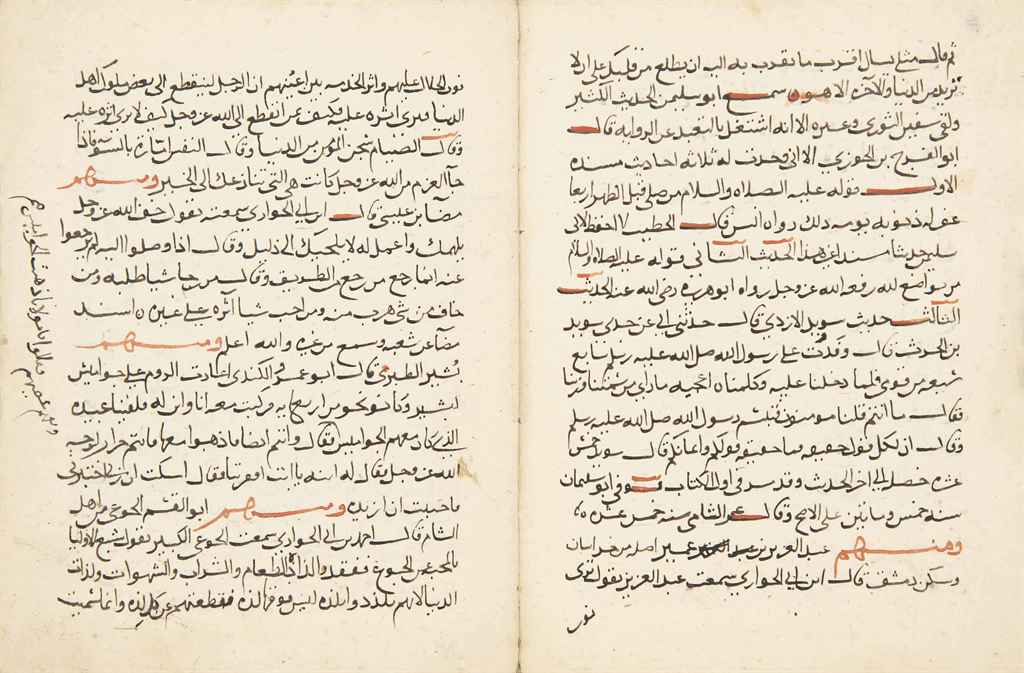 ثم قال مثلي يسال اقرب ما تقرب به اليه ان يطلع من قلبك على انك لا
تريد من الدنيا والآخرة الا هو ن سمع ابو سليمن الحديث الكثير
ولقى سفين الثوري وغيره الا انه اشتغل بالتعبد عن الرواية قال
ابو الفرج بن الجوزي الا اني وجدت له ثلاثة احاديث مسنده
الاول قوله عليه الصلاه والسلام من صلى قبل الظهر اربعا
غفر له ذنوبه يومه ذلك رواه انس قال الخطيب لا احفظ لابي
سليمن حديثا مسندا غير هذا الحديث الثاني قوله عليه الصلاه والسلام
من تواضع لله رفعه الله عز وجل رواه ابو هريره رضي الله عنه الحديث
الثالث حديث سويد الازدي قال حدثني ابي عن جدي سويد
بن الحرث قال وفدت على رسول الله صلى الله عليه وسلم سابع
سبعه من قومي فلما دخلنا عليه وكلمناه اعجبه ما راى من سمتنا وزينا
فقال ما انتم قلنا مومنون فتبسم رسول الله صلى الله عليه وسلم
وقال ان لكل قول حقيقه فما حقيقه قولكم وايمانكم قال سويد خمس
عشره خصله الى اخر الحديث وقد سبق في اول الكتاب توفي ابو سليمان
سنه خمس ومايتين على الاصح وقال عمر الشامي سنه خمس عشره
ومنهم عبد العزيز بن عمير اصله من خراسان
وسكن دمشق قال ابن ابي الحواري سمعت عبد العزيز يقول ترى
نور
نور الحلا عليهم واثر الخدمه بين اعينهم ان الرجل لينقطع الى بعض ملوك اهل
الدنيا فيرى اثره عليه فكيف من انقطع الى الله عز وجل كيف لا يرى اثره عليه
وقال الصيام سجن المومن من الدنيا وقال النفس اماره بالسو فاذا
جا العزم من الله عز وجل كانت هي التي تنازعك الى الخير ومنهم
مضا بن عيسى قال ابن ابي الحواري سمعته يقول خف الله عز وجل
يلهمك واعمل له لا يلجيك الى الذليل وقال اذا وصلوا اليه لم يرجعوا
عنه انما رجع من رجع من الطريق وقال من رجا شيا طلبه ومن
خاف من شي هرب منه ومن احب شيا اثره على غيره ن اسند
مضا عن شعبه وسمع من غيره والله اعلم ومنهم
بشير الطبري قال ابو عمرو الكندي اغارت الروم على جواميس
لبشير وكانو نحو من اربع مايه فركبت معه انا وابن له فلقينا عبيده
الذين كانو معهم الجواميس فقال وانتم ايضا فاذهبوا معها فانتم احرار لوجه
الله عز وجل فقال له ابنه يا ابت افقرتنا فقال اسكت ان ربي اختبرني
فاحببت ان ازيده ومنهم ابو القسم الجوعي من اهل
الشام قال احمد بن ابي الحواري سمعت الجوعي الكبير يقول شبع الاوليا
بالمحبه عن الجوع ففقدوا لذاذة الطعام والشراب والشهوات ولذات
الدنيا لانهم تلذذوا بلذه ليس فوقها لذه فقطعتهم عن كل لذه وانما سميت